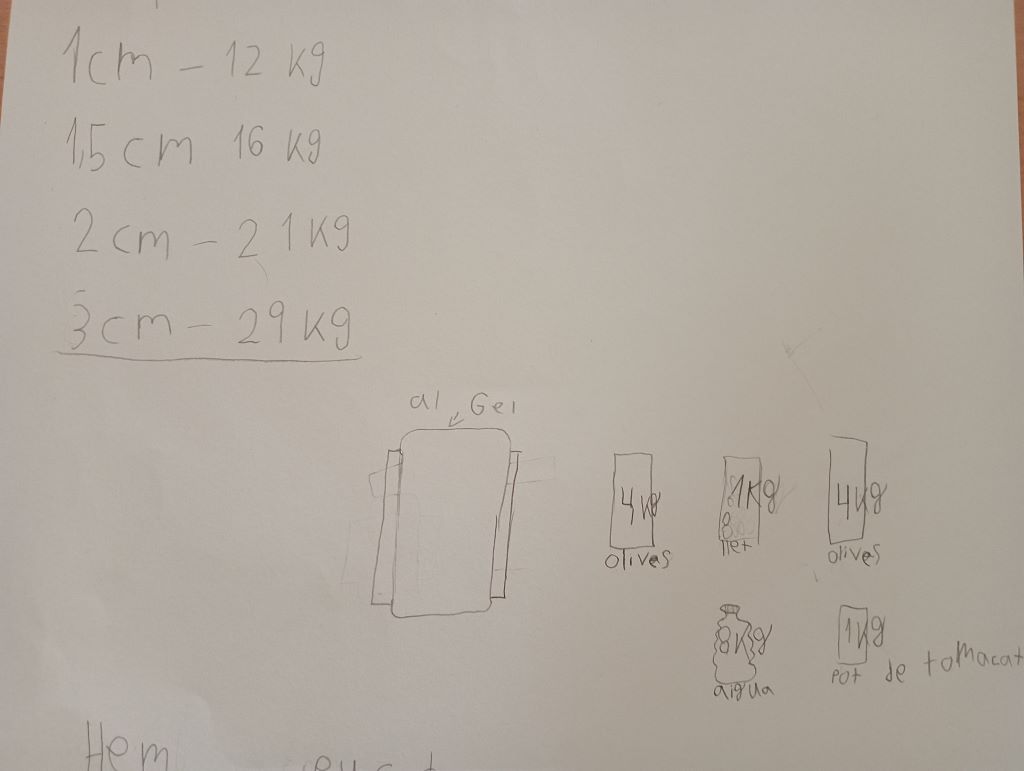 1cm - 12 kg
1,5 cm 16 kg
2 cm - 21 kg
3 cm - 29 kg
al Gel
4 kg
1 kg
4 kg
olives
llet
olives
8 kg
1 kg
aigua
pot de tomacat
Hem